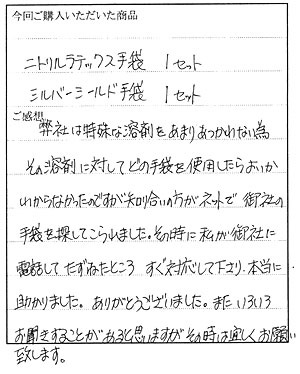 今回ご購入いただいた商品
ニトリルラテックス手袋 1セット
シルバーシールド手袋 1セット
ご感想
弊社は特殊な溶剤をあまりあつかわない為
その溶剤に対してどの手袋を使用したらよいか
わからなかったのですが知り合いの方がネットで御社の
手袋を探してこられました。その時に私が御社に
電話してたずねたところ すぐ対応して下さり、本当に
助かりました。ありがとうございました。また いろいろ
お聞きすることがあると思いますがその時は宜しくお願い
致します。